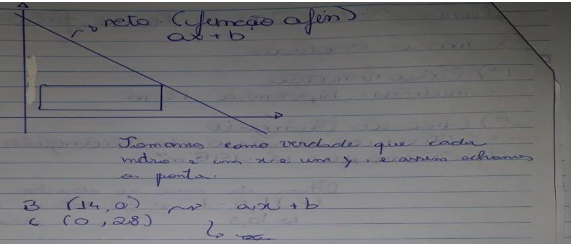 reta (função afim)
ax + b
Tomamos como verdade que cada
metro é um x e um y, e assim achamos
o ponto.
B (14,0) ~> ax + b
C (0,28)